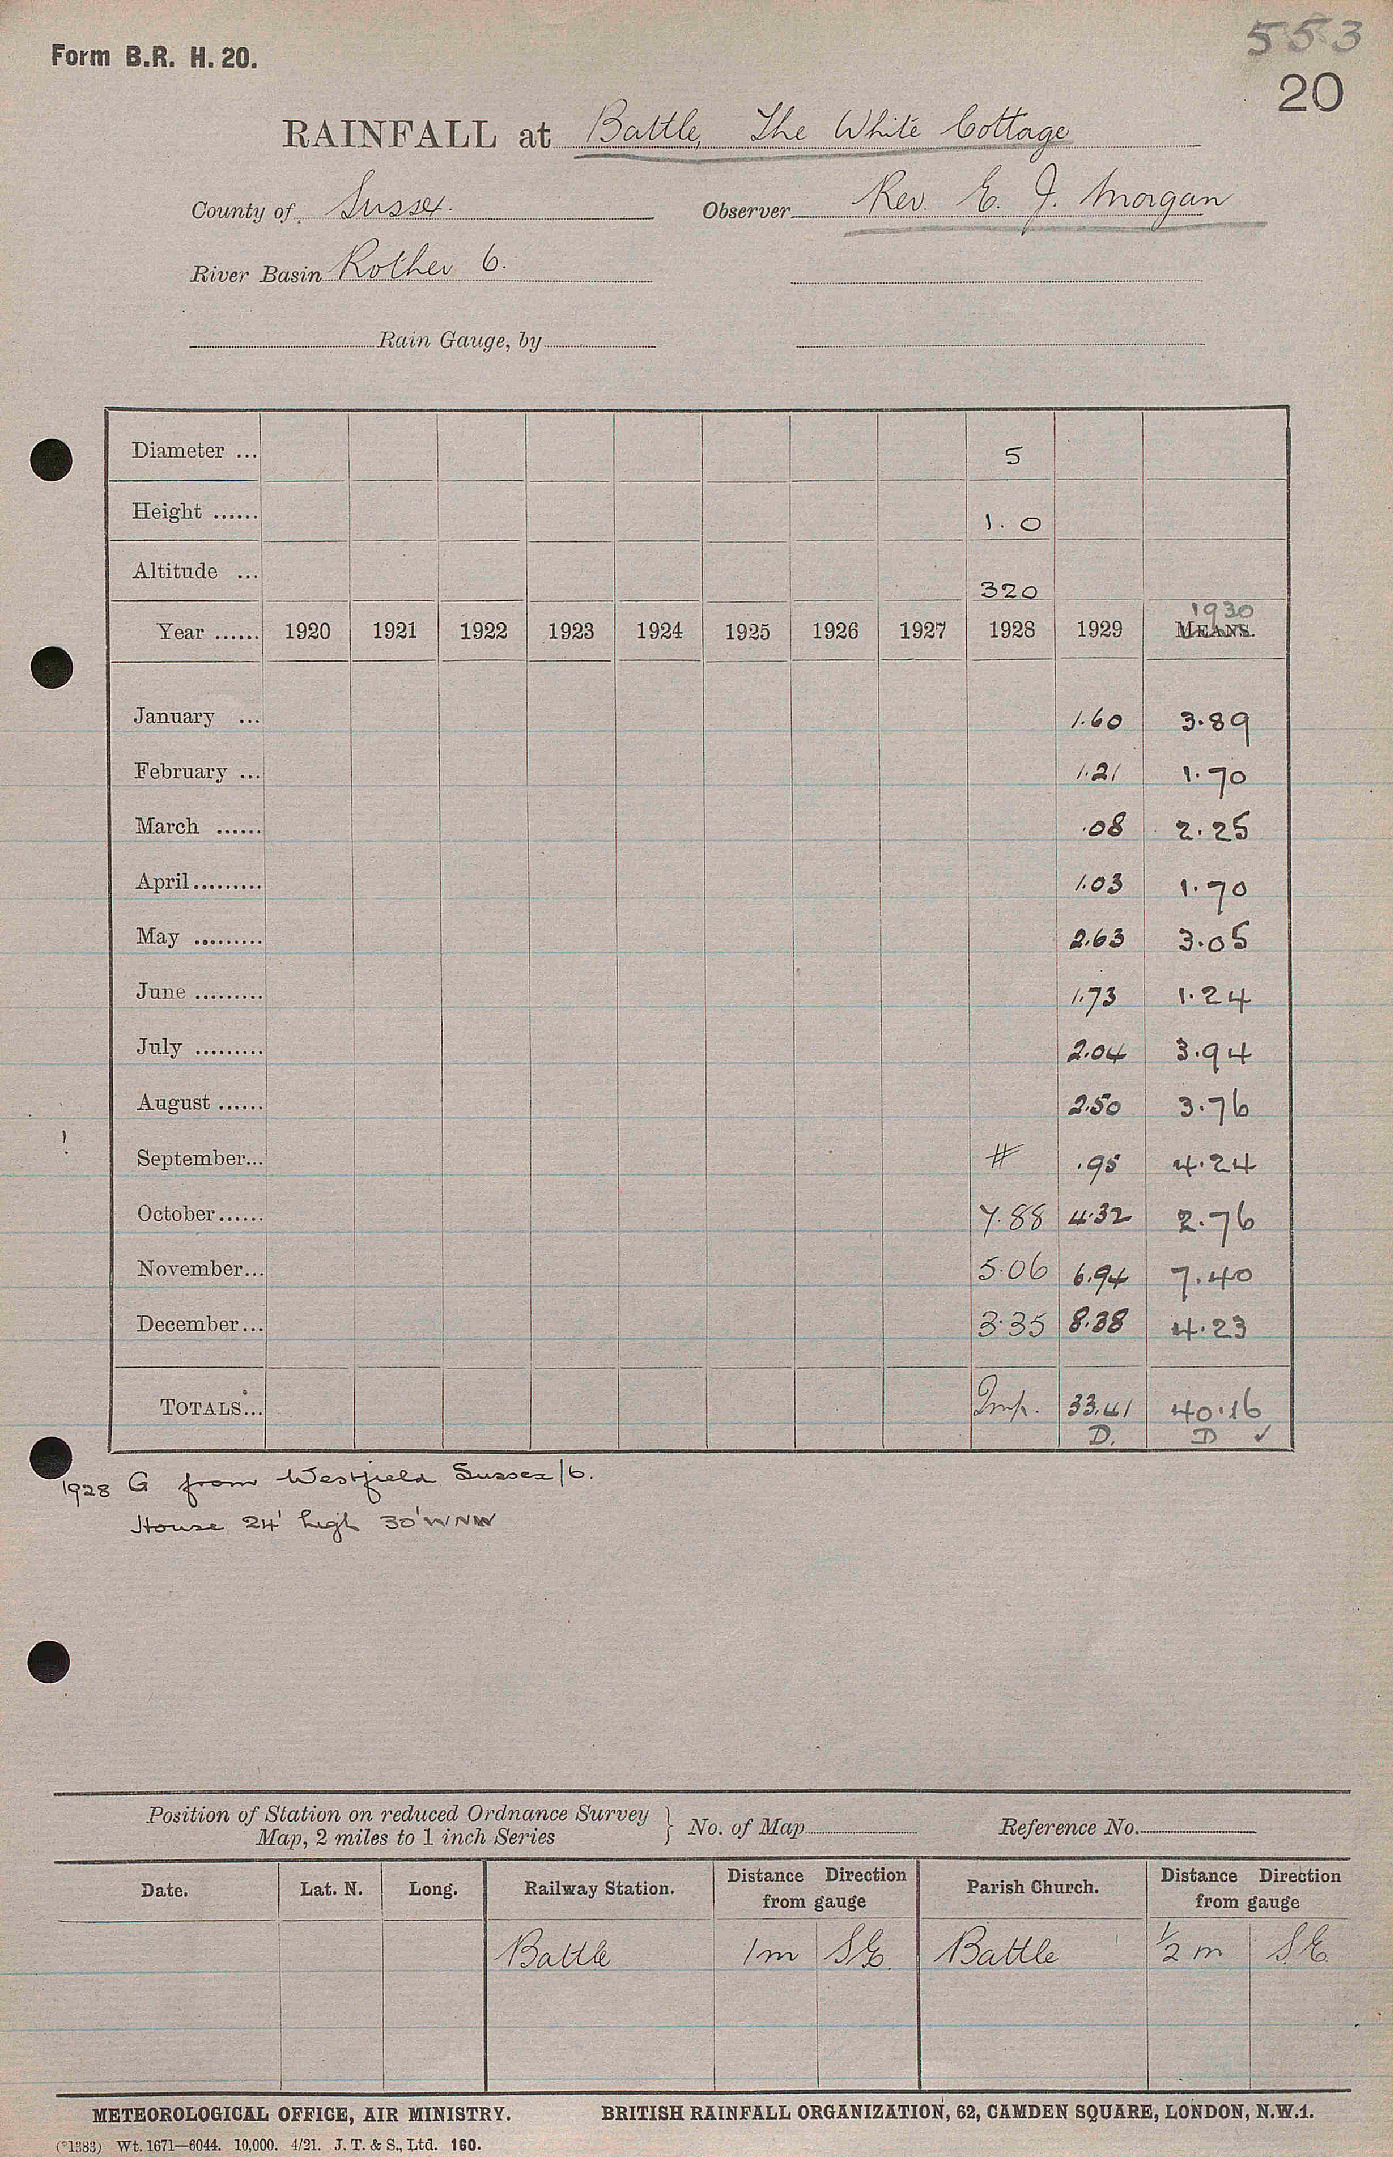 553
Form B.R. H. 20.
20
RAINFALL at Battle, The White Cottage
County of Sussex. Observer Rev. E. J. Morgan
River Basin Rother 6.
Rain Gauge, by
Diameter ... 5
Height ...... 1.0
Altitude ... 320
1930
Year ...... 1920 1921 1922 1923 1924 1925 1926 1927 1928 1929 MEANS.
January ... 1.60 3.89
February ... 1.21 1.70
March ...... .08 2.25
April......... 1.03 1.70
May ......... 2.63 3.05
June ......... 1.73 1.24
July ......... 2.04 3.94
August ...... 2.50 3.76
September... # .95 4.24
October...... 7.88 4.32 2.76
November... 5.06 6.94 7.40
December... 3.35 8.38 4.23
TOTALS... Imp. 33.41 40.16
D. D ✓
1928 G from Westfield Sussex/6.
House 24' high 30' WNW
Position of Station on reduced Ordnance Survey
Map, 2 miles to 1 inch Series } No. of Map Reference No.
Date. Lat. N. Long. Railway Station. Distance Direction from gauge Parish Church. Distance Direction from gauge
Battle 1m S.E. Battle ½ m S.E.
METEOROLOGICAL OFFICE, AIR MINISTRY. BRITISH RAINFALL ORGANIZATION, 62, CAMDEN SQUARE, LONDON, N.W.1.
(*1383) Wt. 1671—6044. 10,000. 4/21. J. T. & S., Ltd. 160.